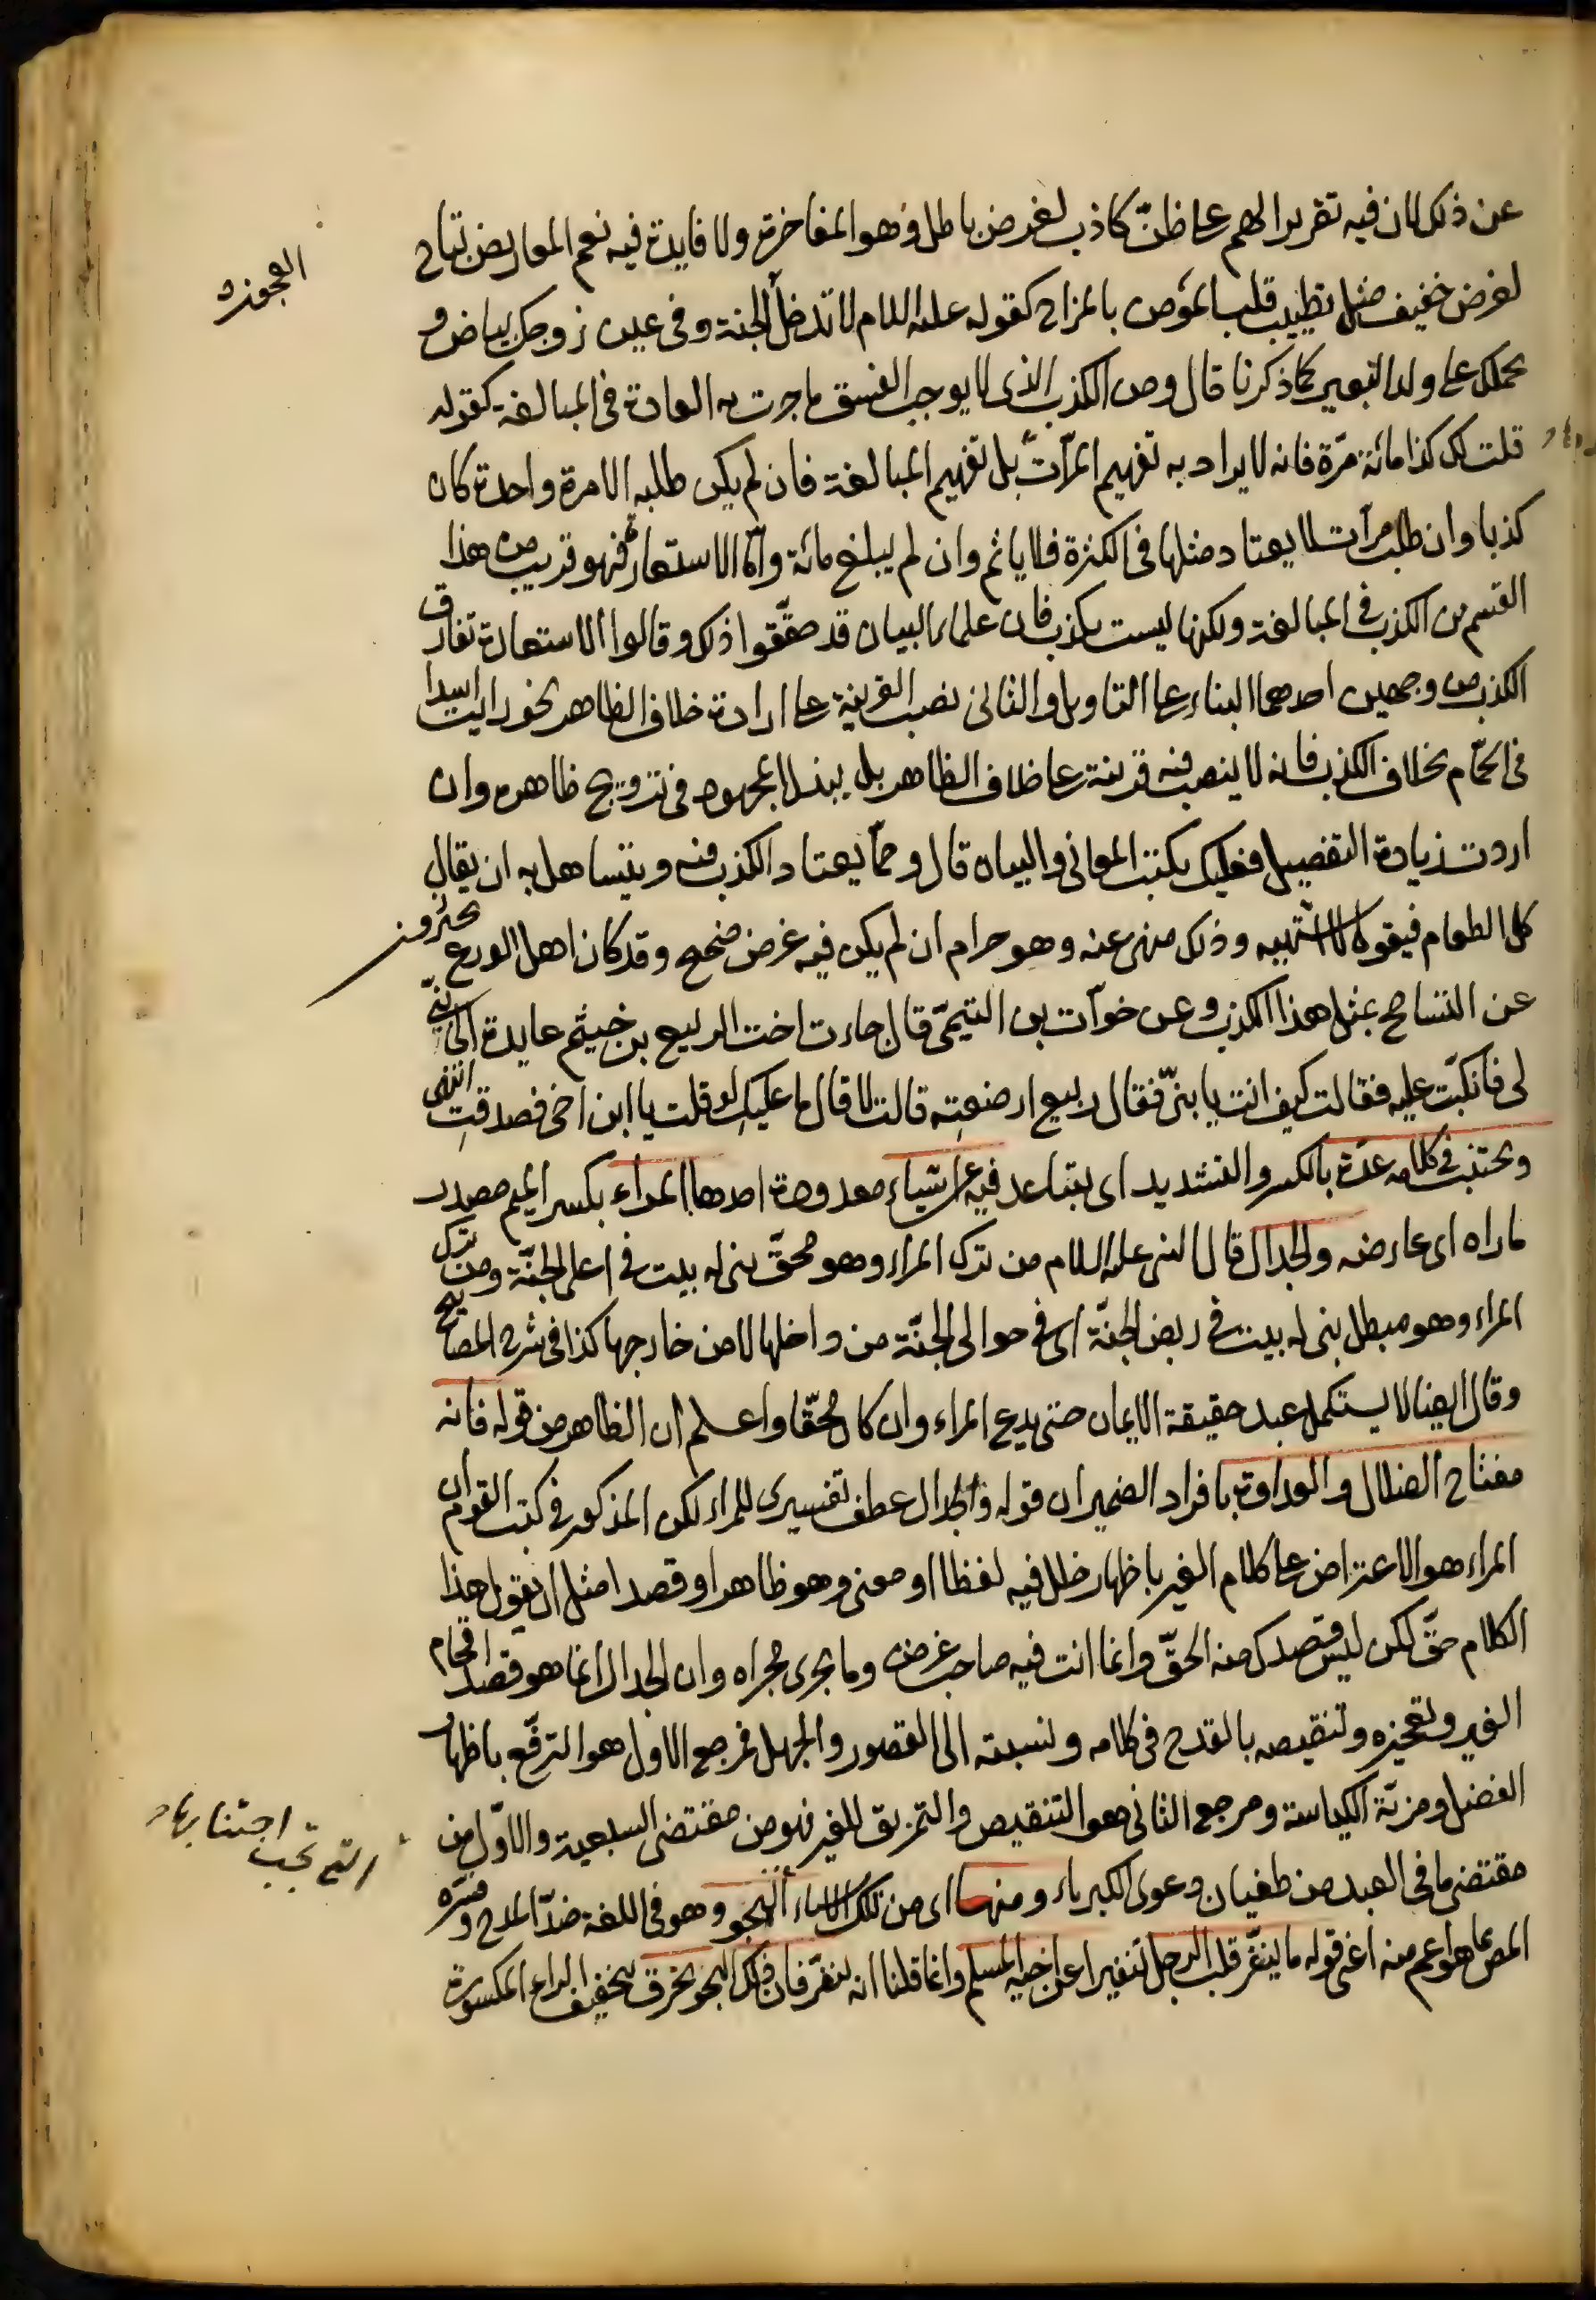 عن ذلك لان فيه تقريرا لهم على ظنّ كاذب لغرض باطل وهو المفاخرة ولا فايدة فيه نعم المعاريض تباح
لغرض خفيف مثل تطييب قلب المؤمن بالمزاح كقوله عليه السلام لا تدخل الجنة وفى عين زوجك بياض و
العجوزة
نحملك على ولد البعير كما ذكرنا قال ومن الكذب الذى لا يوجب الفسق ما جرت به العادة فى المبالغة كقوله
قلت لك كذا مائة مرّة فانه لا يراد به تفهيم المرّات بل تفهيم المبالغة فان لم يكن طلبه الا مرة واحدة كان
كذبا وان طلب مرات لا يعتاد مثلها فى الكثرة فلا ياثم وان لم يبلغ مائة وامّا الاستعارة فهو قريب من هذا
القسم من الكذب فى المبالغة ولكنها ليست بكذب فان علماء البيان قد حقّقوا ذلك وقالوا الاستعارة تفارق
الكذب من وجهين احدهما البناء على التاويل والثانى نصب القرينة على ارادة خلاف الظاهر نحو رايت اسدا
فى الحمّام بخلاف الكذب فانه لا ينصب فيه قرينة على خلاف الظاهر بل يبذل المجهود فى ترويج ظاهره وان
اردت زيادة التفصيل فعليك بكتب المعانى والبيان قال وممّا يعتاد الكذب فيه ويتساهل به ان يقال
كل الطعام فيقول لا اشتهيه وذلك منهى عنه وهو حرام ان لم يكن فيه غرض صحيح وقد كان اهل الورع يحترزون
عن التسامح بمثل هذا الكذب وعن خوّات بن التيمىّ قال جاءت اخت الربيع بن خيثم عايدة الى بنىّ
لى فانكبّت عليه فقالت كيف انت يا بنىّ فقال ربيع ارضعتِه قالت لا قال ما عليكِ لو قلت يا ابن اخى فصدقتِ انتهى
ويجتنب فى كلامه عدّة بالكسر والتشديد اى يتباعد فيه عن اشياء معدودة احدها المراء بكسر الميم مصدر
ماراه اى عارضه والجدال قال النبى عليه السلام من ترك المراء وهو محقّ بنى له بيت فى اعلى الجنّة ومن ترك
المراء وهو مبطل بنى له بيت فى ربض الجنّة اى فى حوالى الجنّة من داخلها لا من خارجها كذا فى شرح المصابيح
وقال ايضا لا يستكمل عبد حقيقة الايمان حتى يدع المراء وان كان محقّا واعلم ان الظاهر من قوله فانه
مفتاح الضلال والعداوة بافراد الضمير ان قوله والجدال عطف تفسيرى للمراء لكن المذكور فى كتب القوم ان
المراء هو الاعتراض على كلام الغير باظهار خلل فيه لفظا او معنى وهو ظاهر او قصدا مثل ان يقول هذا
الكلام حقّ لكن ليس قصدك منه الحقّ وانما انت فيه صاحب غرض وما يجرى مجراه وان الجدال انما هو قصد افحام
الغير وتعجيزه وتنقيصه بالقدح فى كلامه ونسبته الى القصور والجهل فمرجع الاول هو الترفّع باظهار
الفضل ومزيّة الكياسة ومرجع الثانى هو التنقيص والتمزيق للغير فهو من مقتضى السبعية والاوّل من
مقتضى ما فى العبد من طغيان دعوى الكبرياء ومنها اى من تلك الاشياء الهجو وهو فى اللغة ضدّ المدح وفسّره
التى تجب اجتنابها
المص بما هو اعم منه اعنى قوله ما ينفّر قلب الرجل تنفيرا عن اخيه المسلم وانما قلنا انه ينفّر فان ذلك الهجو يخرق بتخفيف الراء المكسورة